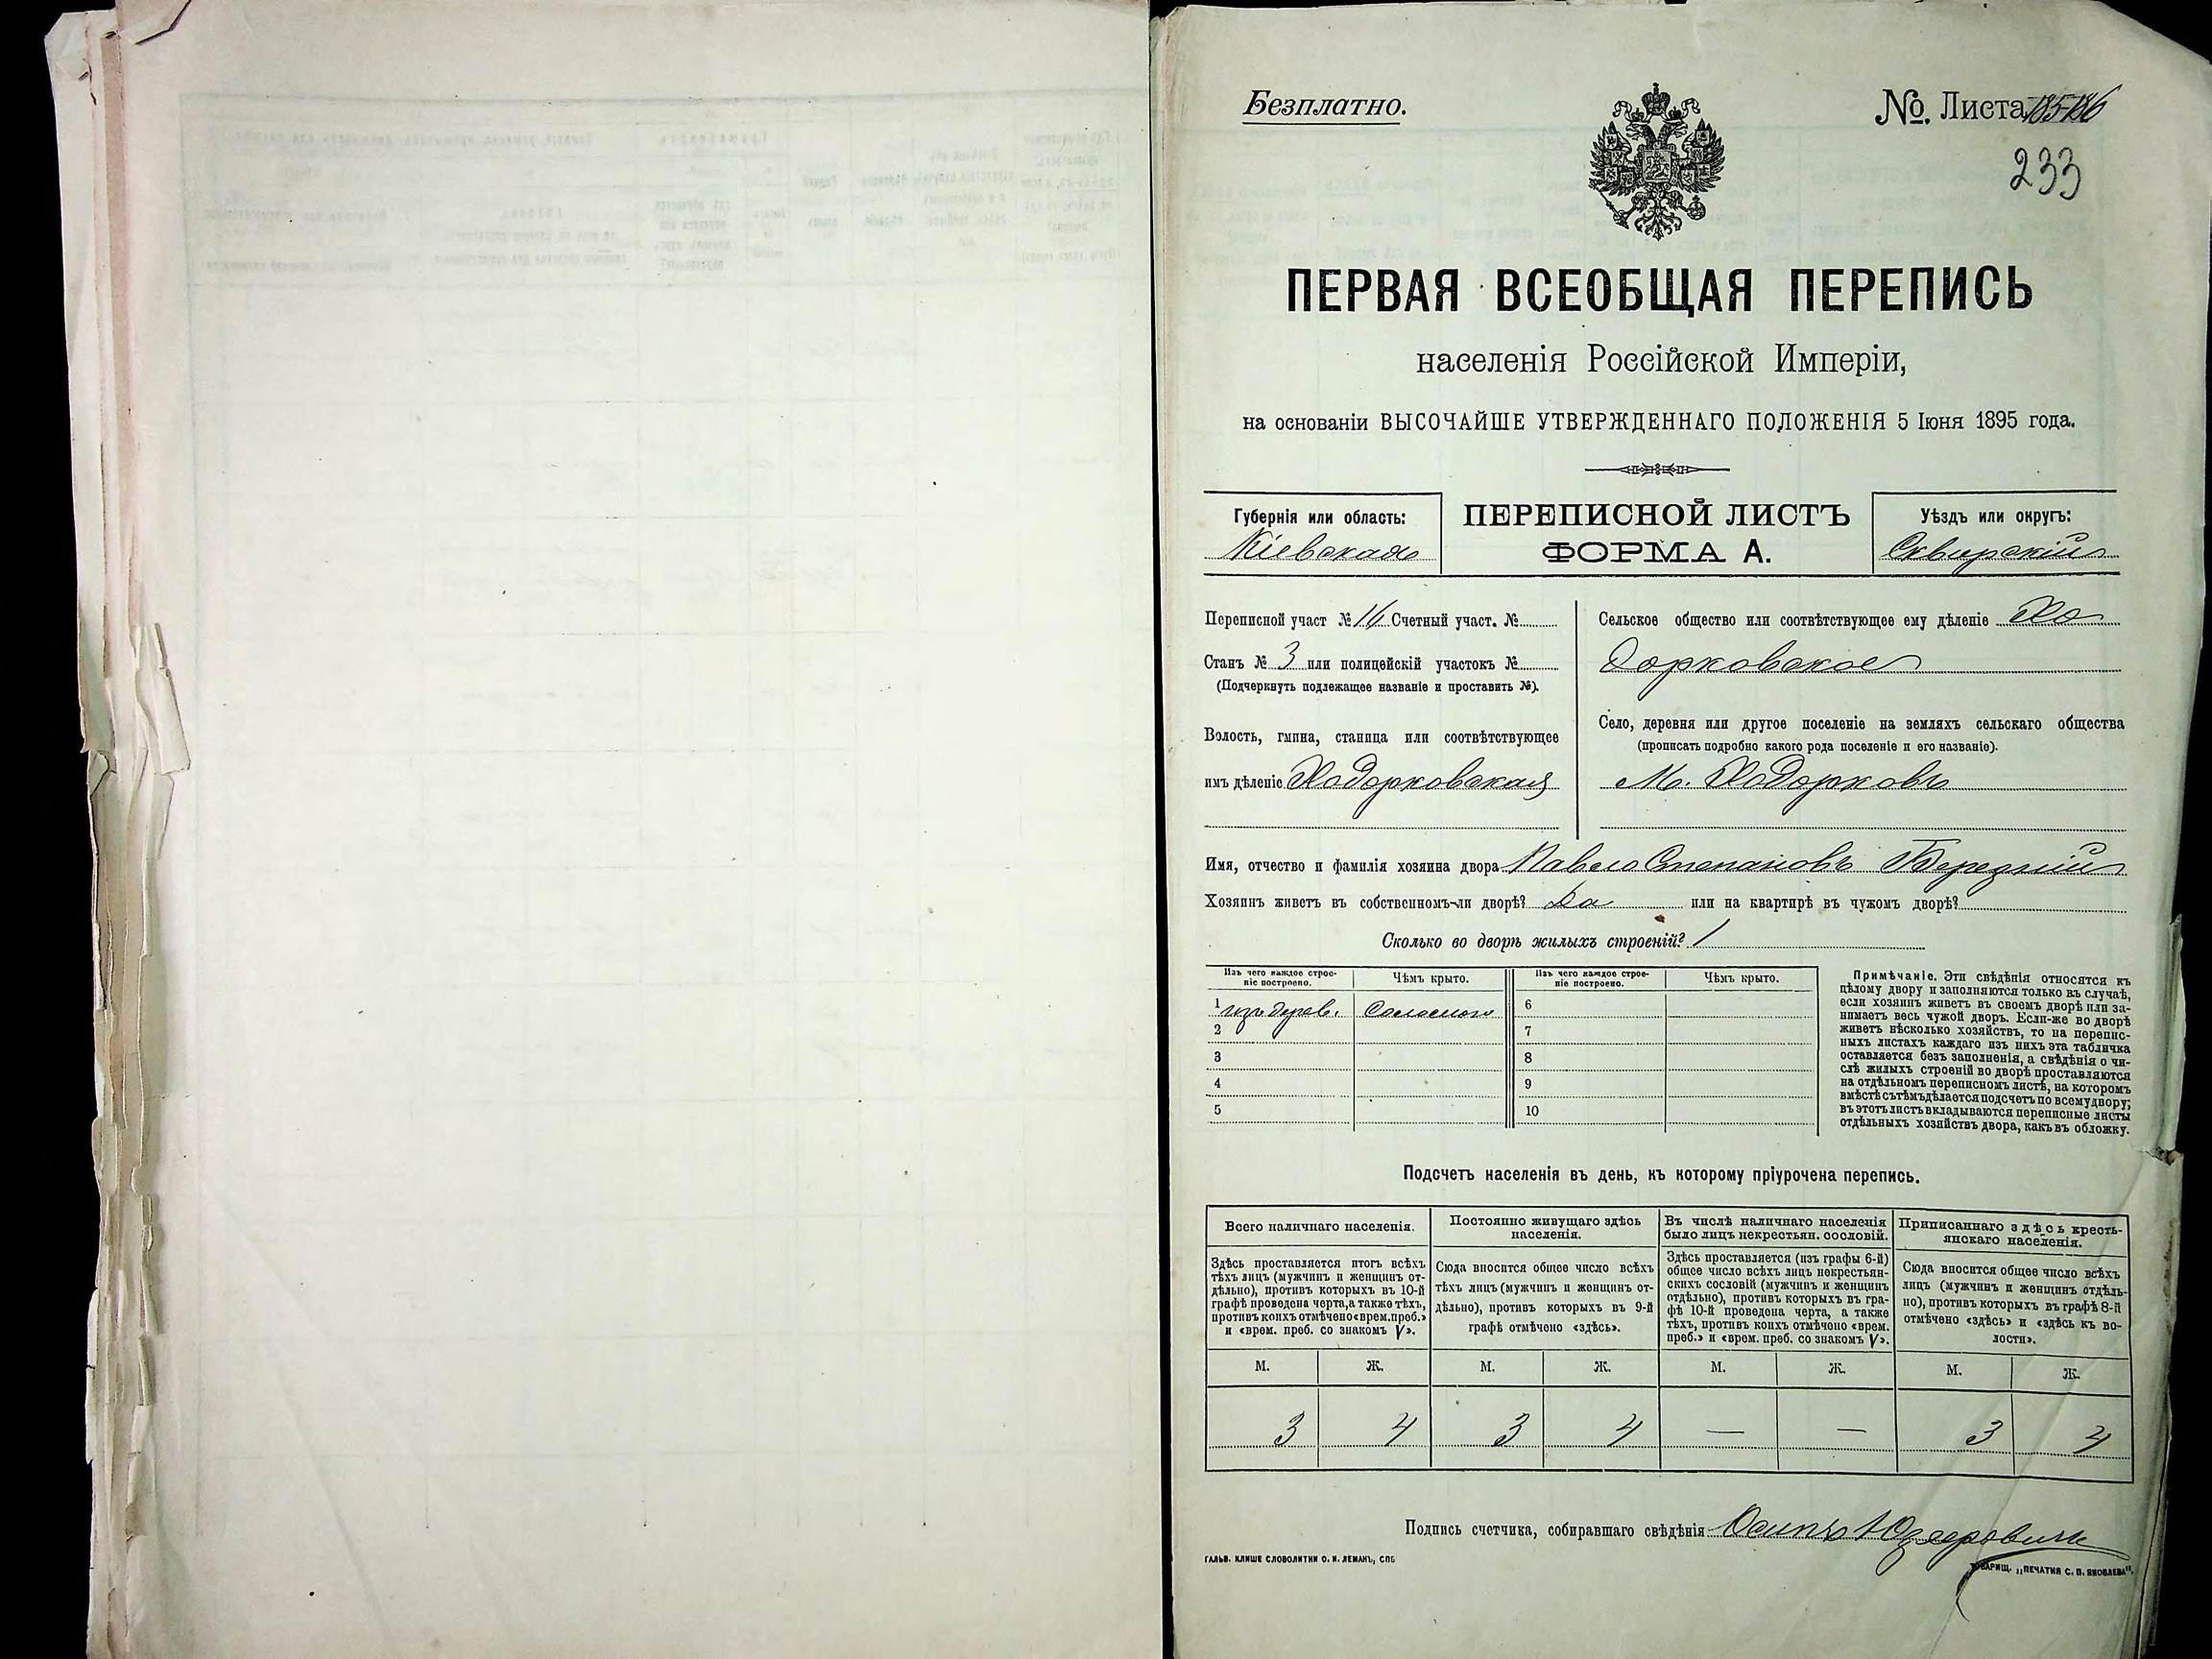 Безплатно.
№ Листа 185-186
233
ПЕРВАЯ ВСЕОБЩАЯ ПЕРЕПИСЬ
населенія Россійской Имперіи,
на основаніи ВЫСОЧАЙШЕ УТВЕРЖДЕННАГО ПОЛОЖЕНІЯ 5 Іюня 1895 года.
Губернія или область:
Кіевская
ПЕРЕПИСНОЙ ЛИСТЪ
ФОРМА А.
Уѣздъ или округъ:
Сквирскій
Переписной участ № 16 Счетный участ. №
Станъ № 3 или полицейскій участокъ №
(Подчеркнуть подлежащее названіе и проставить №).
Волость, гмина, станица или соотвѣтствующее
имъ дѣленіе Ходорковская
Сельское общество или соотвѣтствующее ему дѣленіе Хо
дорковское
Село, деревня или другое поселеніе на земляхъ сельскаго общества
(прописать подробно какого рода поселеніе и его названіе).
М. Ходорковъ
Имя, отчество и фамилія хозяина двора Павелъ Степановъ
Хозяинъ живетъ въ собственномъ-ли дворѣ? Да или на квартирѣ въ чужомъ дворѣ?
Сколько во дворѣ жилыхъ строеній? 1
Изъ чего каждое строе-
ніе построено.
Чѣмъ крыто.
Изъ чего каждое строе-
ніе построено.
Чѣмъ крыто.
1 изъ дерев. Соломою 6
2 7
3 8
4 9
5 10
Примѣчаніе. Эти свѣдѣнія относятся къ
цѣлому двору и заполняются только въ случаѣ,
если хозяинъ живетъ въ своемъ дворѣ или за-
нимаетъ весь чужой дворъ. Если-же во дворѣ
живетъ нѣсколько хозяйствъ, то на перепис-
ныхъ листахъ каждаго изъ нихъ эта табличка
оставляется безъ заполненія, а свѣдѣнія о чи-
слѣ жилыхъ строеній во дворѣ проставляются
на отдѣльномъ переписномъ листѣ, на которомъ
вмѣстѣ съ тѣмъ дѣлается подсчетъ по всему двору;
въ этотъ листъ вкладываются переписные листы
отдѣльныхъ хозяйствъ двора, какъ въ обложку.
Подсчетъ населенія въ день, къ которому пріурочена перепись.
Всего наличнаго населенія.
Здѣсь проставляется итогъ всѣхъ
тѣхъ лицъ (мужчинъ и женщинъ от-
дѣльно), противъ которыхъ въ 10-й
графѣ проведена черта, а также тѣхъ,
противъ коихъ отмѣчено «врем. преб.»
и «врем. преб. со знакомъ V».
Постоянно живущаго здѣсь
населенія.
Сюда вносится общее число всѣхъ
тѣхъ лицъ (мужчинъ и женщинъ от-
дѣльно), противъ которыхъ въ 9-й
графѣ отмѣчено «здѣсь».
Въ числѣ наличнаго населенія
было лицъ некрестьян. сословій.
Здѣсь проставляется (изъ графы 6-й)
общее число всѣхъ лицъ некрестьян-
скихъ сословій (мужчинъ и женщинъ
отдѣльно), противъ которыхъ въ гра-
фѣ 10-й проведена черта, а также
тѣхъ, противъ коихъ отмѣчено «врем.
преб.» и «врем. преб. со знакомъ V».
Приписаннаго здѣсь кресть-
янскаго населенія.
Сюда вносится общее число всѣхъ
лицъ (мужчинъ и женщинъ отдѣль-
но), противъ которыхъ въ графѣ 8-й
отмѣчено «здѣсь» и «здѣсь къ во-
лости».
М. Ж. М. Ж. М. Ж. М. Ж.
3 4 3 4 — — 3 4
Подпись счетчика, собиравшаго свѣдѣнія Осипъ
ГАЛЬВ. КЛИШЕ СЛОВОЛИТНИ О. И. ЛЕМАНЪ, СПБ
ТОВАРИЩ. „ПЕЧАТНЯ С. П. ЯКОВЛЕВА".